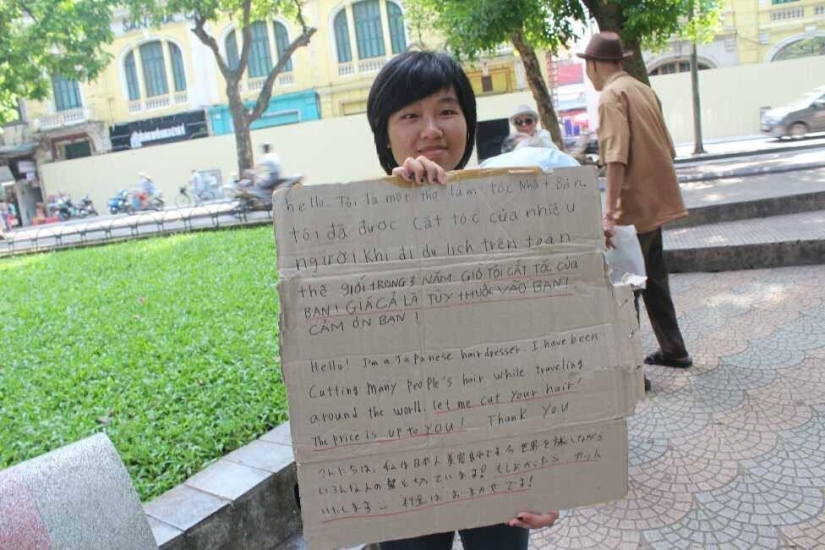 hello. Tôi là một thợ làm tóc Nhật Bản,
tôi đã được cắt tóc của nhiều
người khi đi du lịch trên toàn
thế GIỚI TRONG 3 NĂM GIỜ TÔI CẮT TỐC CỦA
BẠN! GIÁ CẢ LÀ TÙY THUỘC VÀO BẠN!
CẢM ƠN BẠN!
Hello! I'm a Japanese hairdresser. I have been
Cutting many people's hair while traveling
around the world. let me cut your hair!
The price is up to YOU! Thank you
こんにちは、私は日本人美容師です。今世界を旅しながら
いろんな人の髪を切っています! もしよかったら カット
いたします 料金はおまかせです!